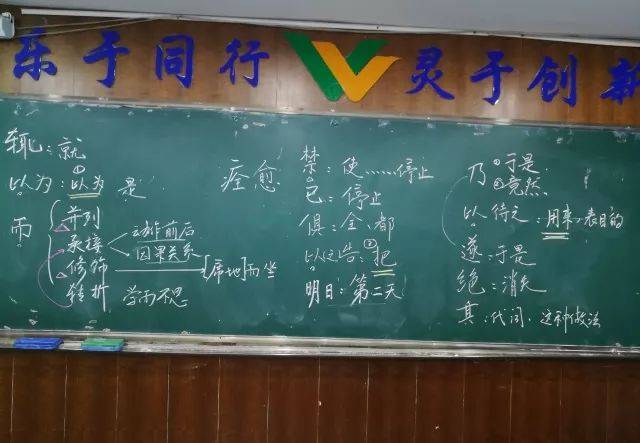 乐于同行 灵于创新
辄：就
以为：①以为 是
而
并列
承接
动作前后
因果关系
修饰
[席地]而坐
转折
学而不思
痊愈
禁：使……停止
已：停止
俱：全、都
以之告：②把
明日：第二天
乃 ①于是
②竟然
以 待之：用来，表目的
遂：于是
绝：消失
其：代词，这种做法